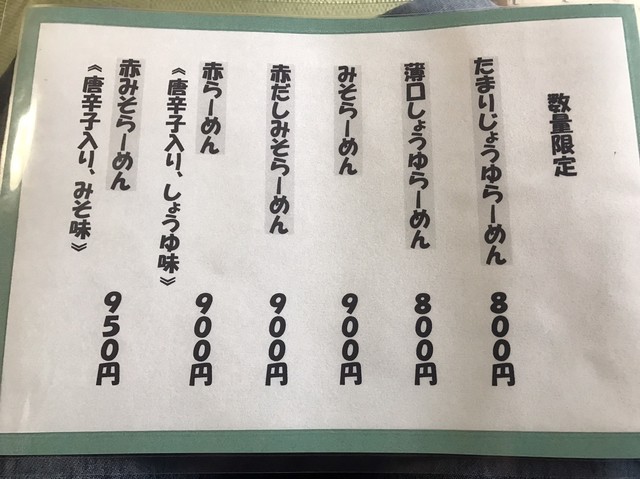 数量限定
たまりじょうゆらーめん 800円
薄口しょうゆらーめん 800円
みそらーめん 900円
赤だしみそらーめん 900円
赤らーめん 900円
《唐辛子入り、しょうゆ味》
赤みそらーめん 950円
《唐辛子入り、みそ味》